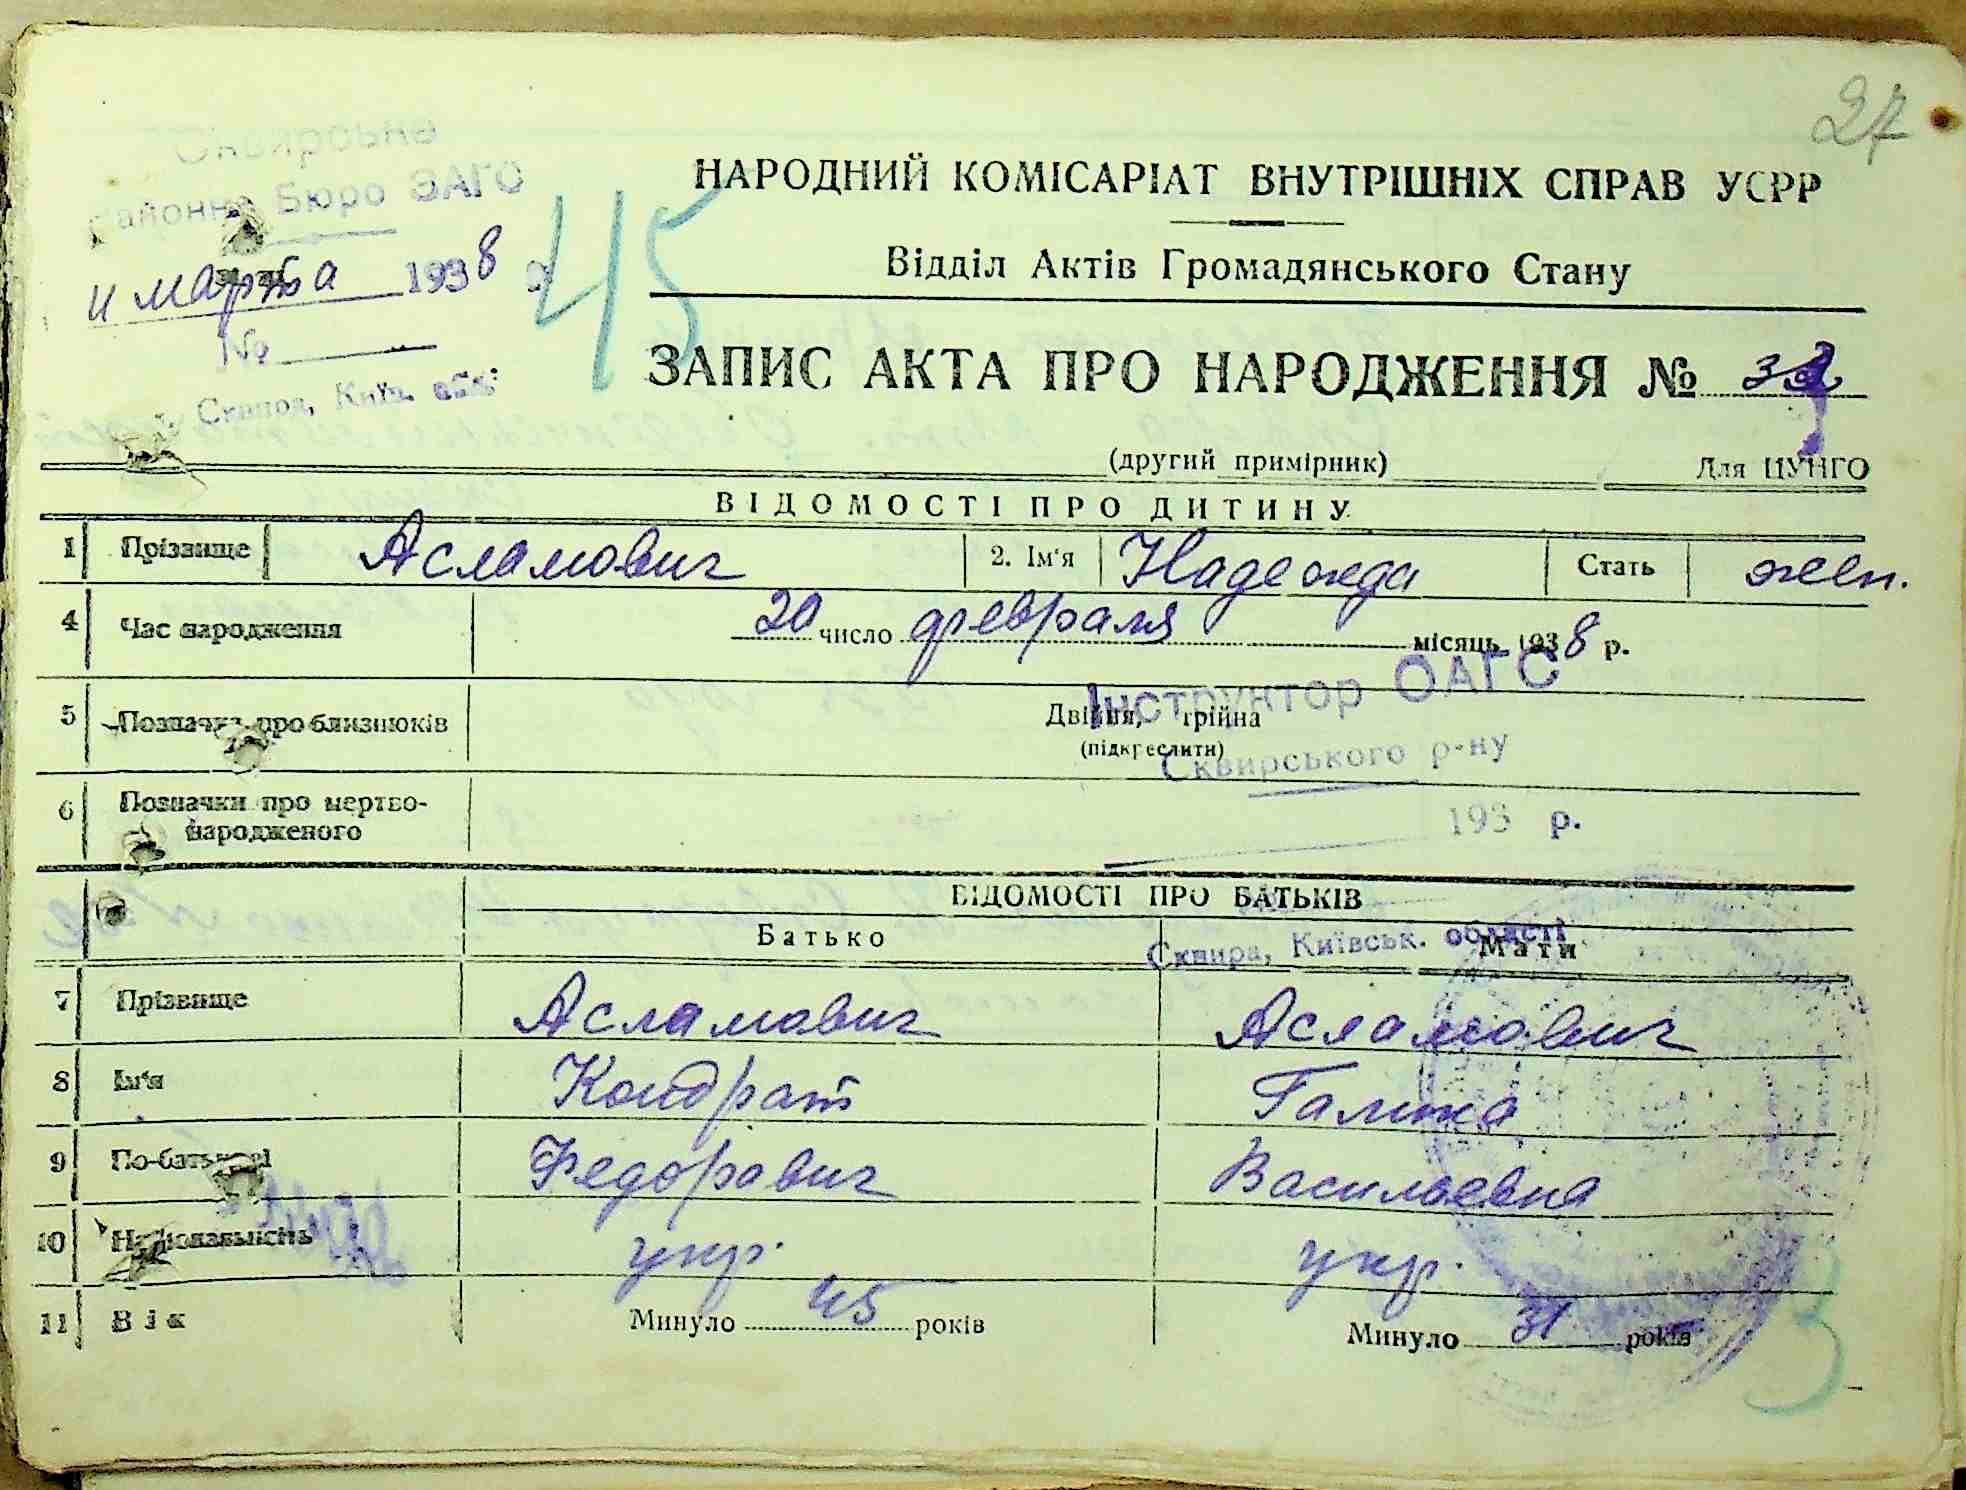 27
Сквирське
Районне Бюро ЗАГС
11 марта 1938 р.
№
Сквира, Київ. обл.
45
НАРОДНИЙ КОМІСАРІАТ ВНУТРІШНІХ СПРАВ УСРР
Відділ Актів Громадянського Стану
ЗАПИС АКТА ПРО НАРОДЖЕННЯ №
(другий примірник) Для ЦУНГО
ВІДОМОСТІ ПРО ДИТИНУ
1 Прізвище Асламович 2. Ім'я Надежда Стать жен.
4 Час народження 20 число февраля місяць 1938 р.
Інструктор ОАГС
5 Позначка про близнюків Двійня, трійна
(підкреслити)
Сквирського р-ну
6 Позначки про мертво-
народженого
193 р.
ВІДОМОСТІ ПРО БАТЬКІВ
Батько Мати
Сквира, Київськ. області
7 Прізвище Асламович Асламович
8 Ім'я Кондрат Галина
9 По-батькові Федорович Васильевна
10 Національність укр. укр.
11 Вік Минуло 45 років Минуло 31 років
3